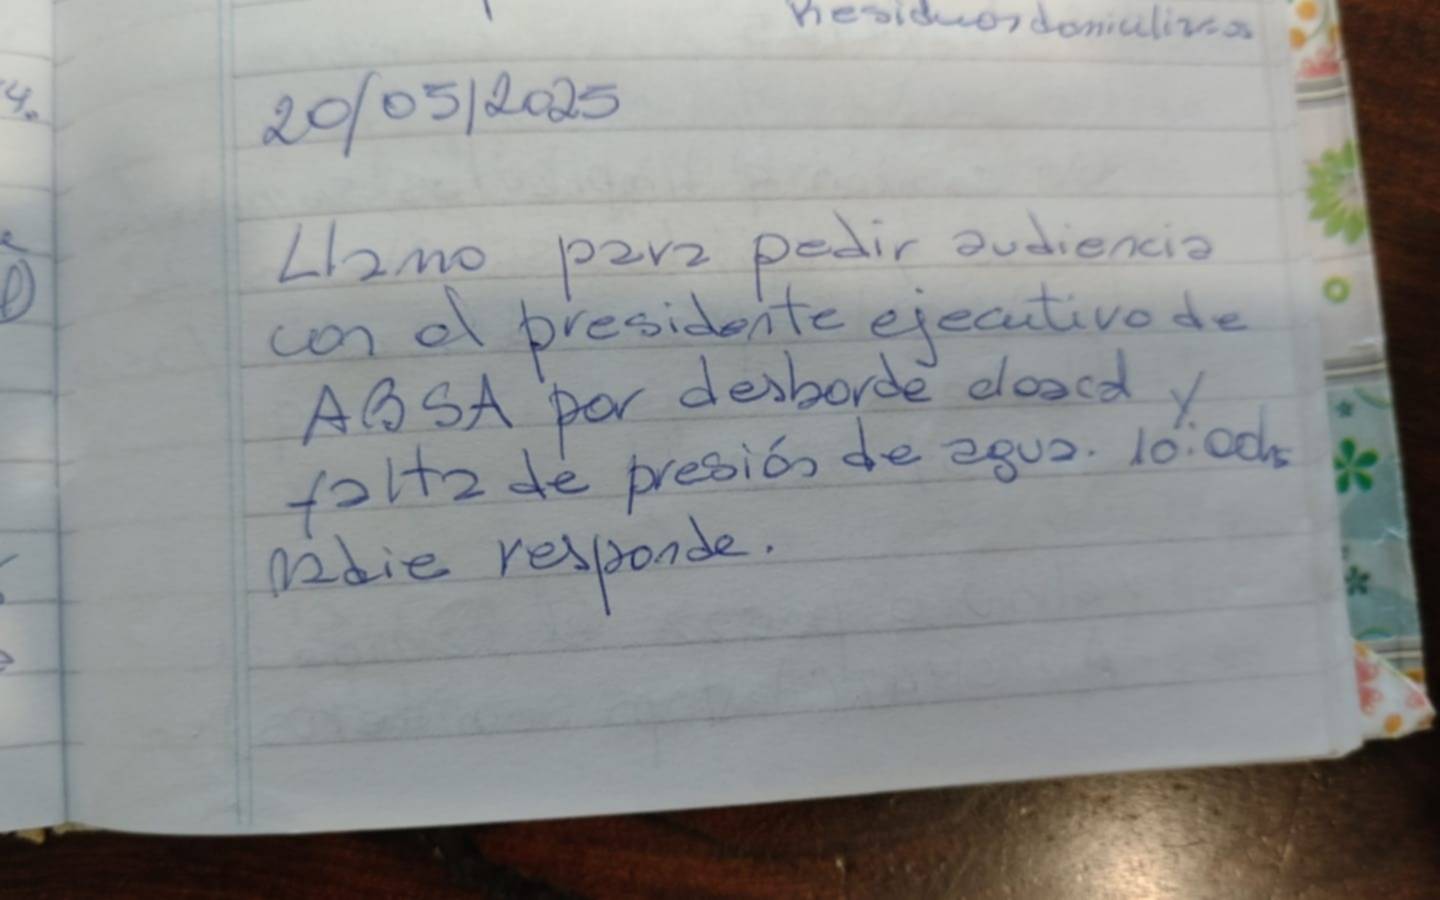 Residuos domiciliarios
20/05/2025
Llamo para pedir audiencia
con el presidente ejecutivo de
ABSA por desborde cloacal y
falta de presión de agua. 10:00hs
Nadie responde.